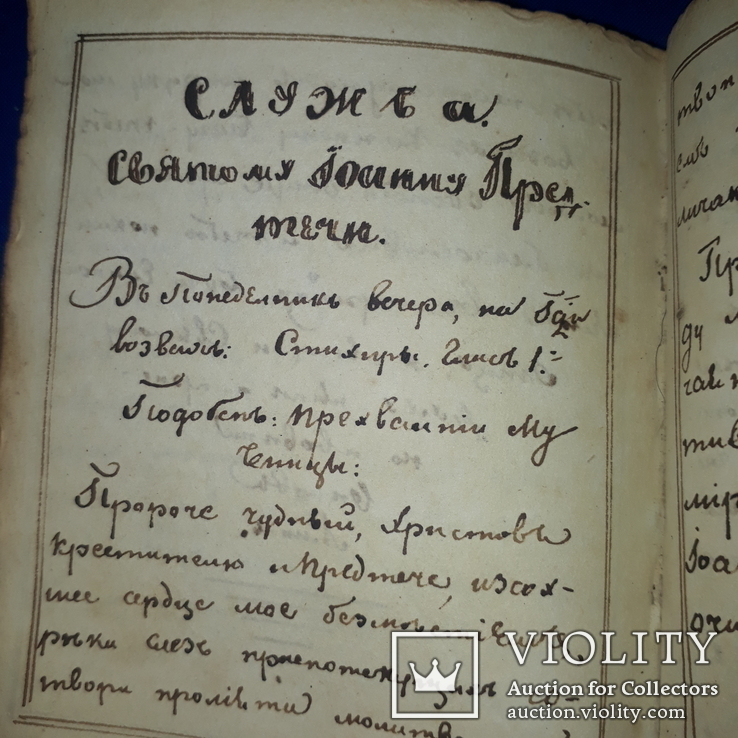 СЛУЖБА.
Святому Іоанну Пред-
течи.
Въ Понеделникъ вечера, на Гди
возвахъ: Стихиры. Гласъ 1:
Подобенъ: прехвалніи Му
ченицы:
Пророче чудный, Христовъ
крестителю и Предтече, изсох-
шее сердце мое безмовствіемъ,
рѣки слезъ
твори проліяти молитв
твоп
емъ
личак
Пр
ду
чаи
тив
мір
Іоа
очи
VIOLITY
Auction for Collectors
auction.violity.com